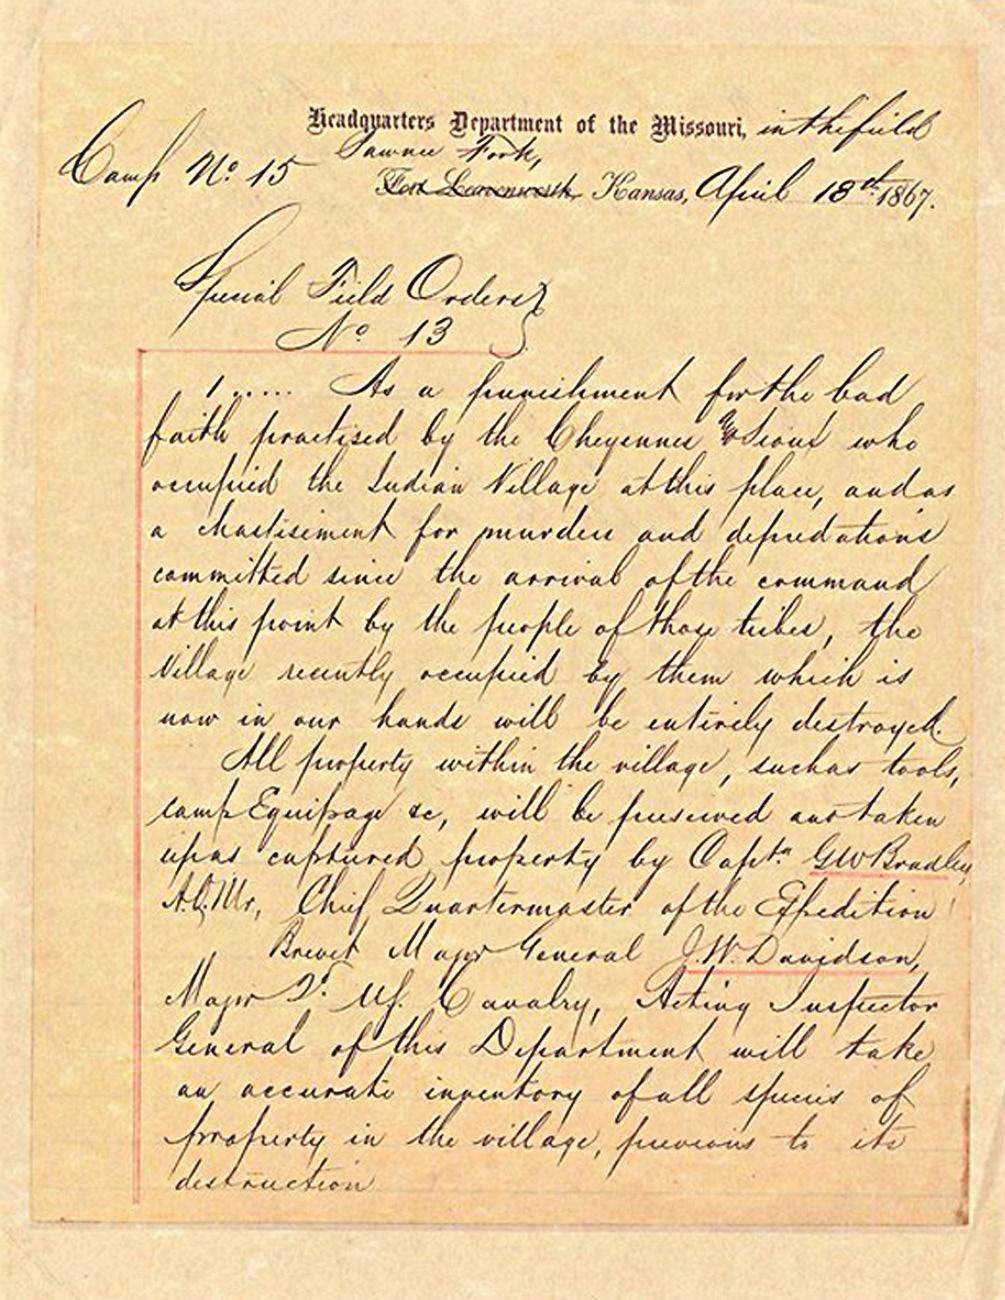 Headquarters Department of the Missouri, in the field
Camp No. 15 Pawnee Fork,
Fort Leavenworth, Kansas, April 18th 1867.
Special Field Orders
No 13
1..... As a punishment for the bad
faith practised by the Cheyennes & Sioux who
occupied the Indian Village at this place, and as
a chastisement for murders and depredations
committed since the arrival of the command
at this point by the people of those tribes, the
Village recently occupied by them which is
now in our hands will be entirely destroyed.
All property within the village, such as tools,
camp Equipage &c, will be preserved and taken
up as captured property by Captn. G W Bradley,
A.Q.Mr, Chief Quartermaster of the Expedition
Brevet Major General J.W. Davidson,
Major 2d. US. Cavalry, Acting Inspector
General of this Department will take
an accurate inventory of all species of
property in the village, previous to its
destruction